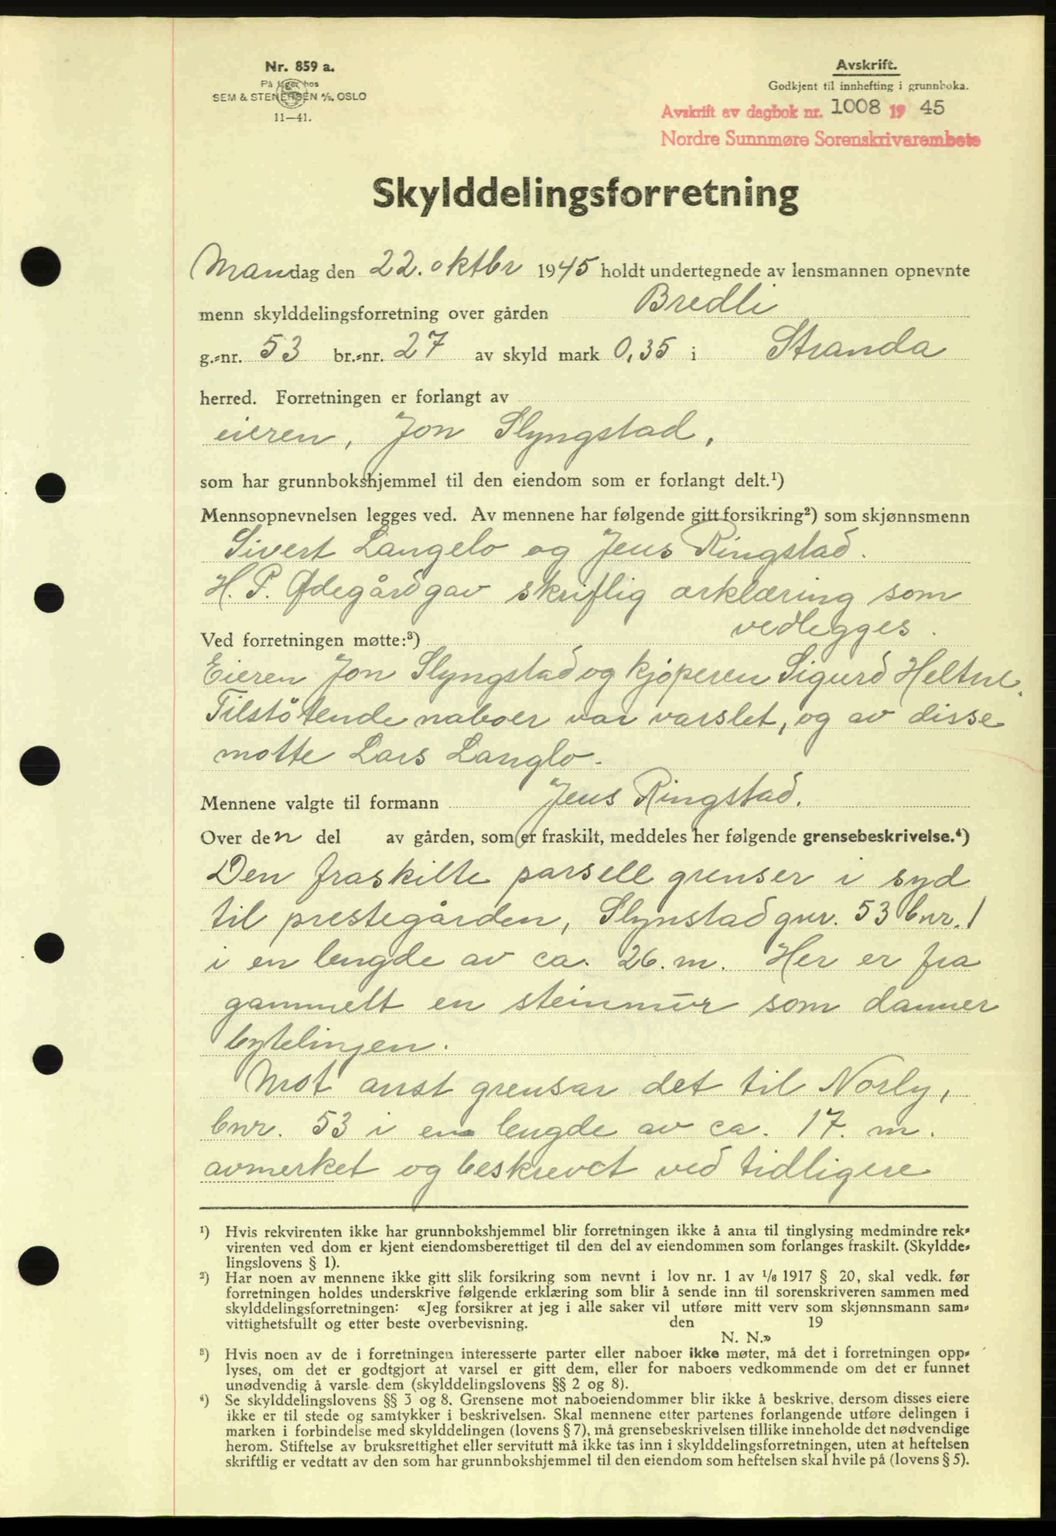 Nr. 859 a.
På lager hos
SEM & STENERSEN A/S, OSLO
11—41.
Avskrift.
Godkjent til innhefting i grunnboka.
Avskrift av dagbok nr. 1008 19 45
Nordre Sunnmøre Sorenskrivarembete
Skylddelingsforretning
Mandag den 22. oktbr 1945 holdt undertegnede av lensmannen opnevnte
menn skylddelingsforretning over gården Bredli
g.-nr. 53 br.-nr. 27 av skyld mark 0,35 i Stranda
herred. Forretningen er forlangt av
eieren, Jon Slyngstad,
som har grunnbokshjemmel til den eiendom som er forlangt delt.¹)
Mennsopnevnelsen legges ved. Av mennene har følgende gitt forsikring²) som skjønnsmenn
Sivert Langelo og Jens Ringstad.
H. P. Ødegård gav skriflig ærklæring som
vedlegges.
Ved forretningen møtte:³)
Eieren Jon Slyngstad og kjøperen Sigurd Heltne.
Tilstøtende naboer var varslet, og av disse
møtte Lars Langlo.
Mennene valgte til formann Jens Ringstad.
Over den del av gården, som er fraskilt, meddeles her følgende grensebeskrivelse.⁴)
Den fraskilte parsell grenser i syd
til prestegården, Slynstad gnr. 53 bnr. 1
i en lengde av ca. 26. m. Her er fra
gammelt en steinmur som danner
bytelinjen.
Mot aust grensar det til Norly,
bnr. 53 i en lengde av ca. 17. m.
avmerket og beskrevet ved tidligere
¹) Hvis rekvirenten ikke har grunnbokshjemmel blir forretningen ikke å anta til tinglysing medmindre rek-
virenten ved dom er kjent eiendomsberettiget til den del av eiendommen som forlanges fraskilt. (Skyldde-
lingslovens § 1).
²) Har noen av mennene ikke gitt slik forsikring som nevnt i lov nr. 1 av 1/6 1917 § 20, skal vedk. før
forretningen holdes underskrive følgende erklæring som blir å sende inn til sorenskriveren sammen med
skylddelingsforretningen: «Jeg forsikrer at jeg i alle saker vil utføre mitt verv som skjønnsmann sam-
vittighetsfullt og etter beste overbevisning. den 19
N. N.»
³) Hvis noen av de i forretningen interesserte parter eller naboer ikke møter, må det i forretningen opp-
lyses, om det er godtgjort at varsel er gitt dem, eller for naboers vedkommende om det er funnet
unødvendig å varsle dem (skylddelingslovens §§ 2 og 8).
⁴) Se skylddelingslovens §§ 3 og 8. Grensene mot naboeiendommer blir ikke å beskrive, dersom disses eiere
ikke er til stede og samtykker i beskrivelsen. Skal mennene etter partenes forlangende utføre delingen i
marken i forbindelse med skylddelingen (lovens § 7), må grensebeskrivelsen tillike inneholde det nødvendige
herom. Stiftelse av bruksrettighet eller servitutt må ikke tas inn i skylddelingsforretningen, uten at heftelsen
skriftlig er vedtatt av den som har grunnbokshjemmel til den eiendom som heftelsen skal hvile på (lovens § 5).